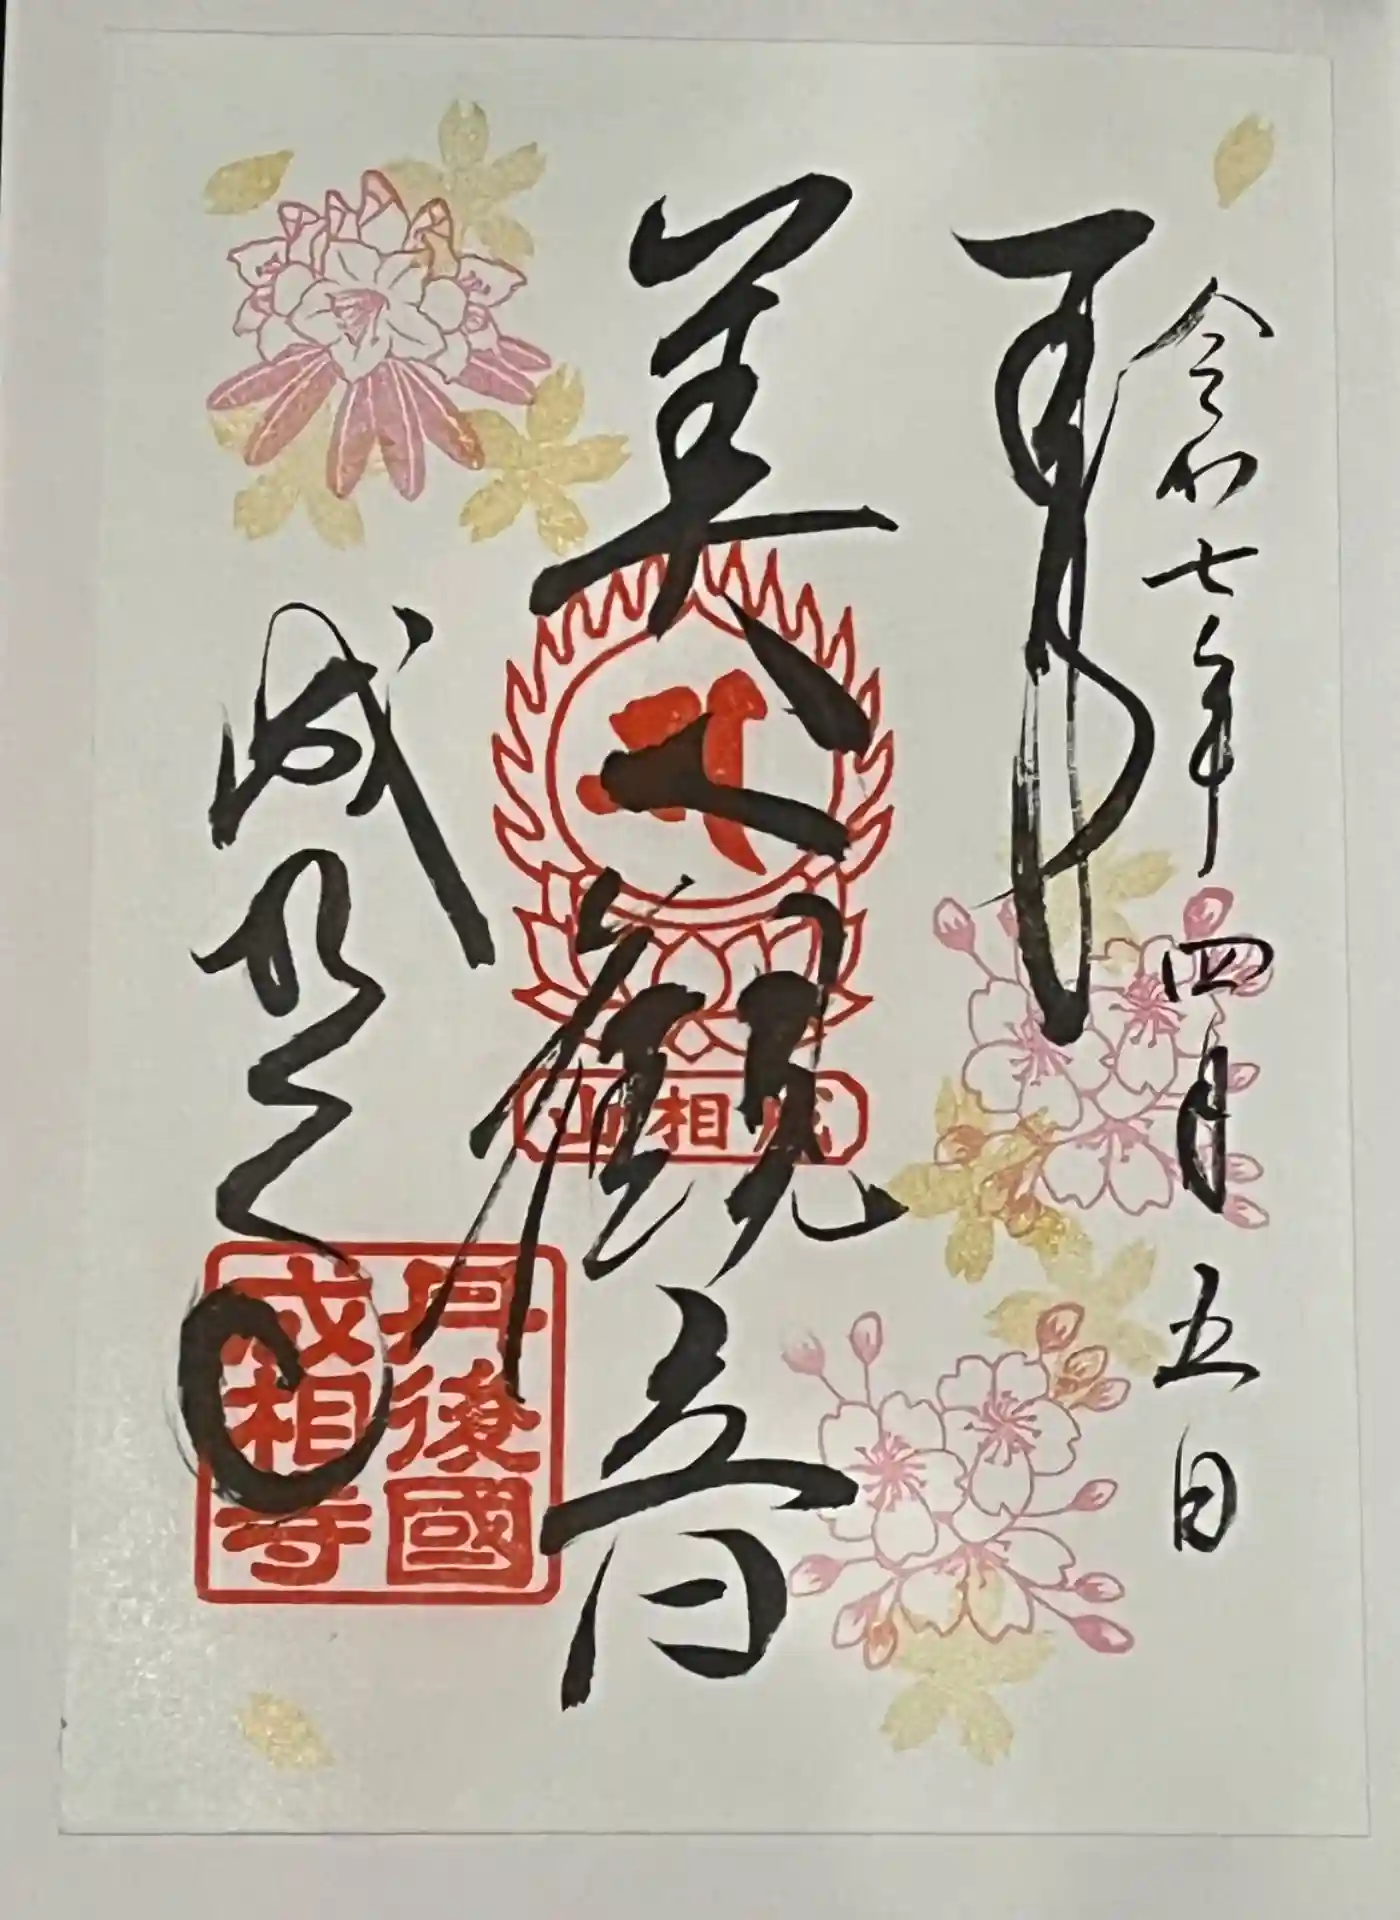 令和七年四月五日
奉拝
美人観音
成相山
丹後國
成相寺
成相寺